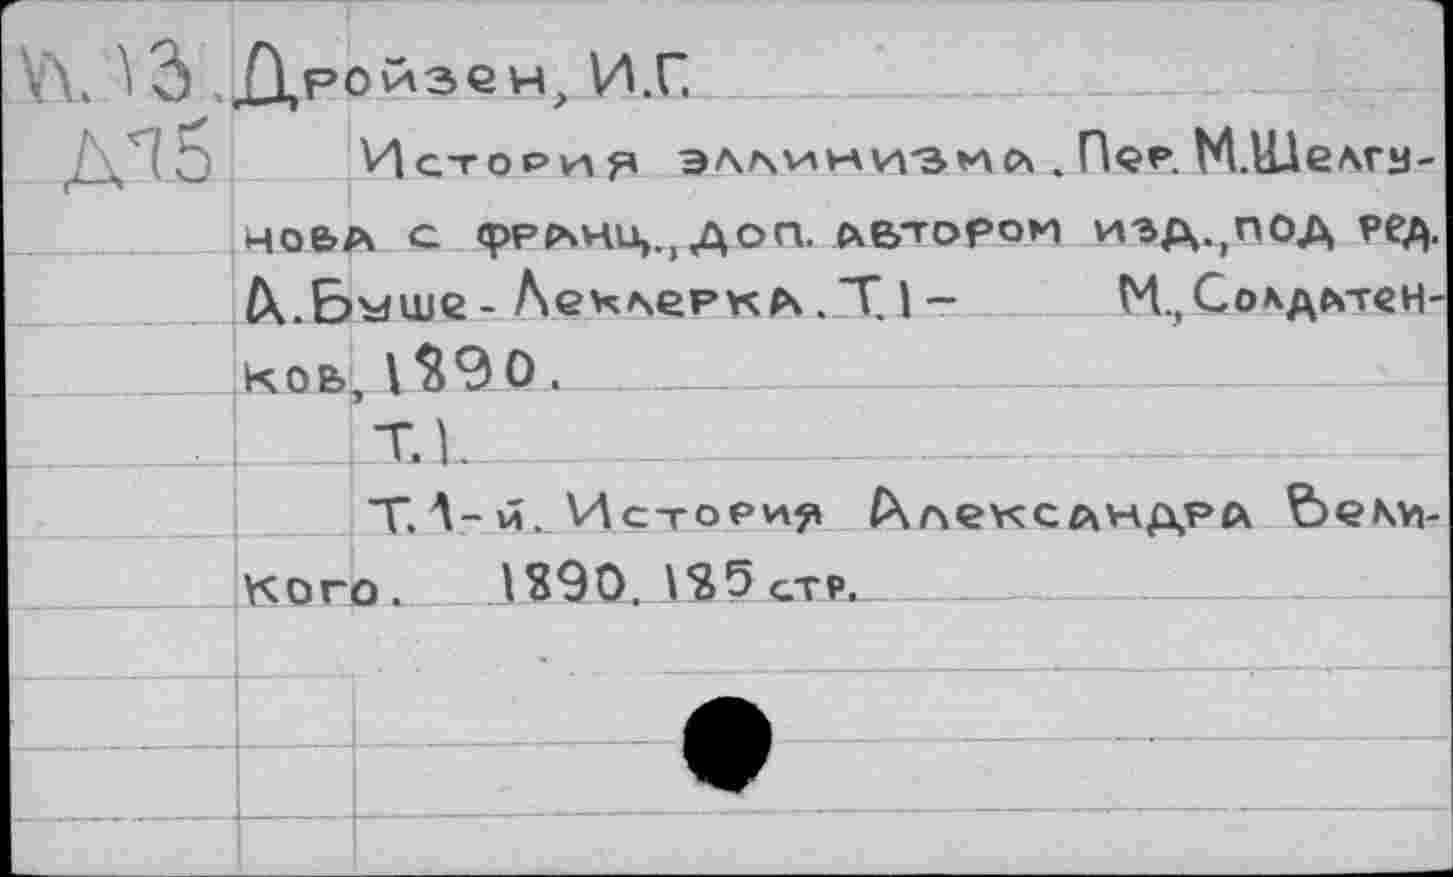 И.13. Дройзен, И.Г.
Д75 История эллинизма. Пер. М.Шелгу-
нова с франц., доп. автором изд., под ред.
А.Буше-Леклерка. Т.1- М., Солдатен-
ков, 1890.
Т.1.
Т.1-й. История Александра Вели-
кого. 1890. 185 стр.